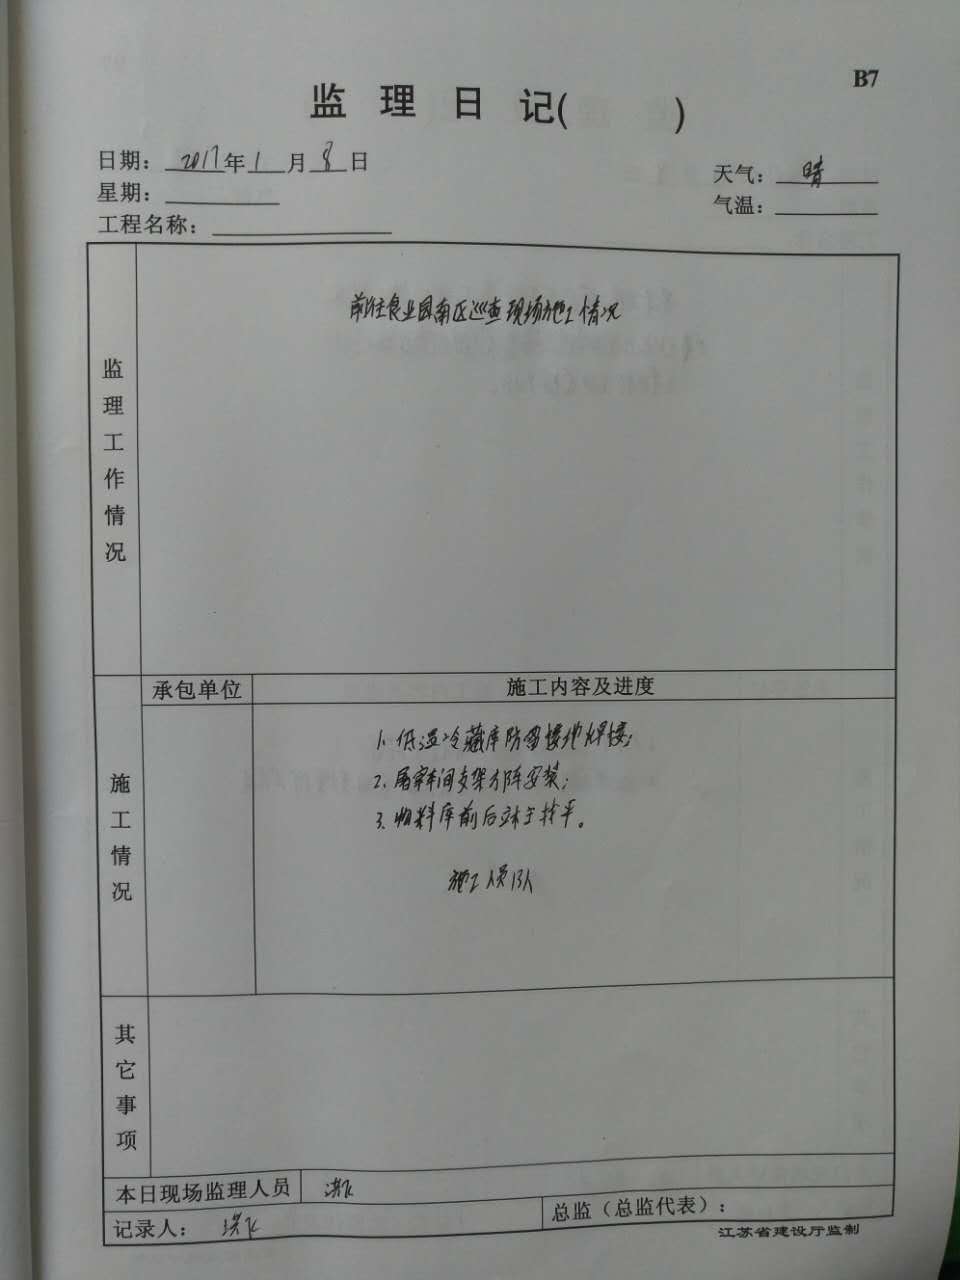 B7
监 理 日 记( )
日期：2017年1月8日
天气：晴
星期：
气温：
工程名称：
监理工作情况
前往食业园南区巡查现场施工情况
承包单位
施工内容及进度
施工情况
1. 低温冷藏库防雷接地焊接；
2. 屠宰车间支架方阵安装；
3. 物料库前后
施工人员13人
其它事项
本日现场监理人员
记录人：
总监（总监代表）：
江苏省建设厅监制